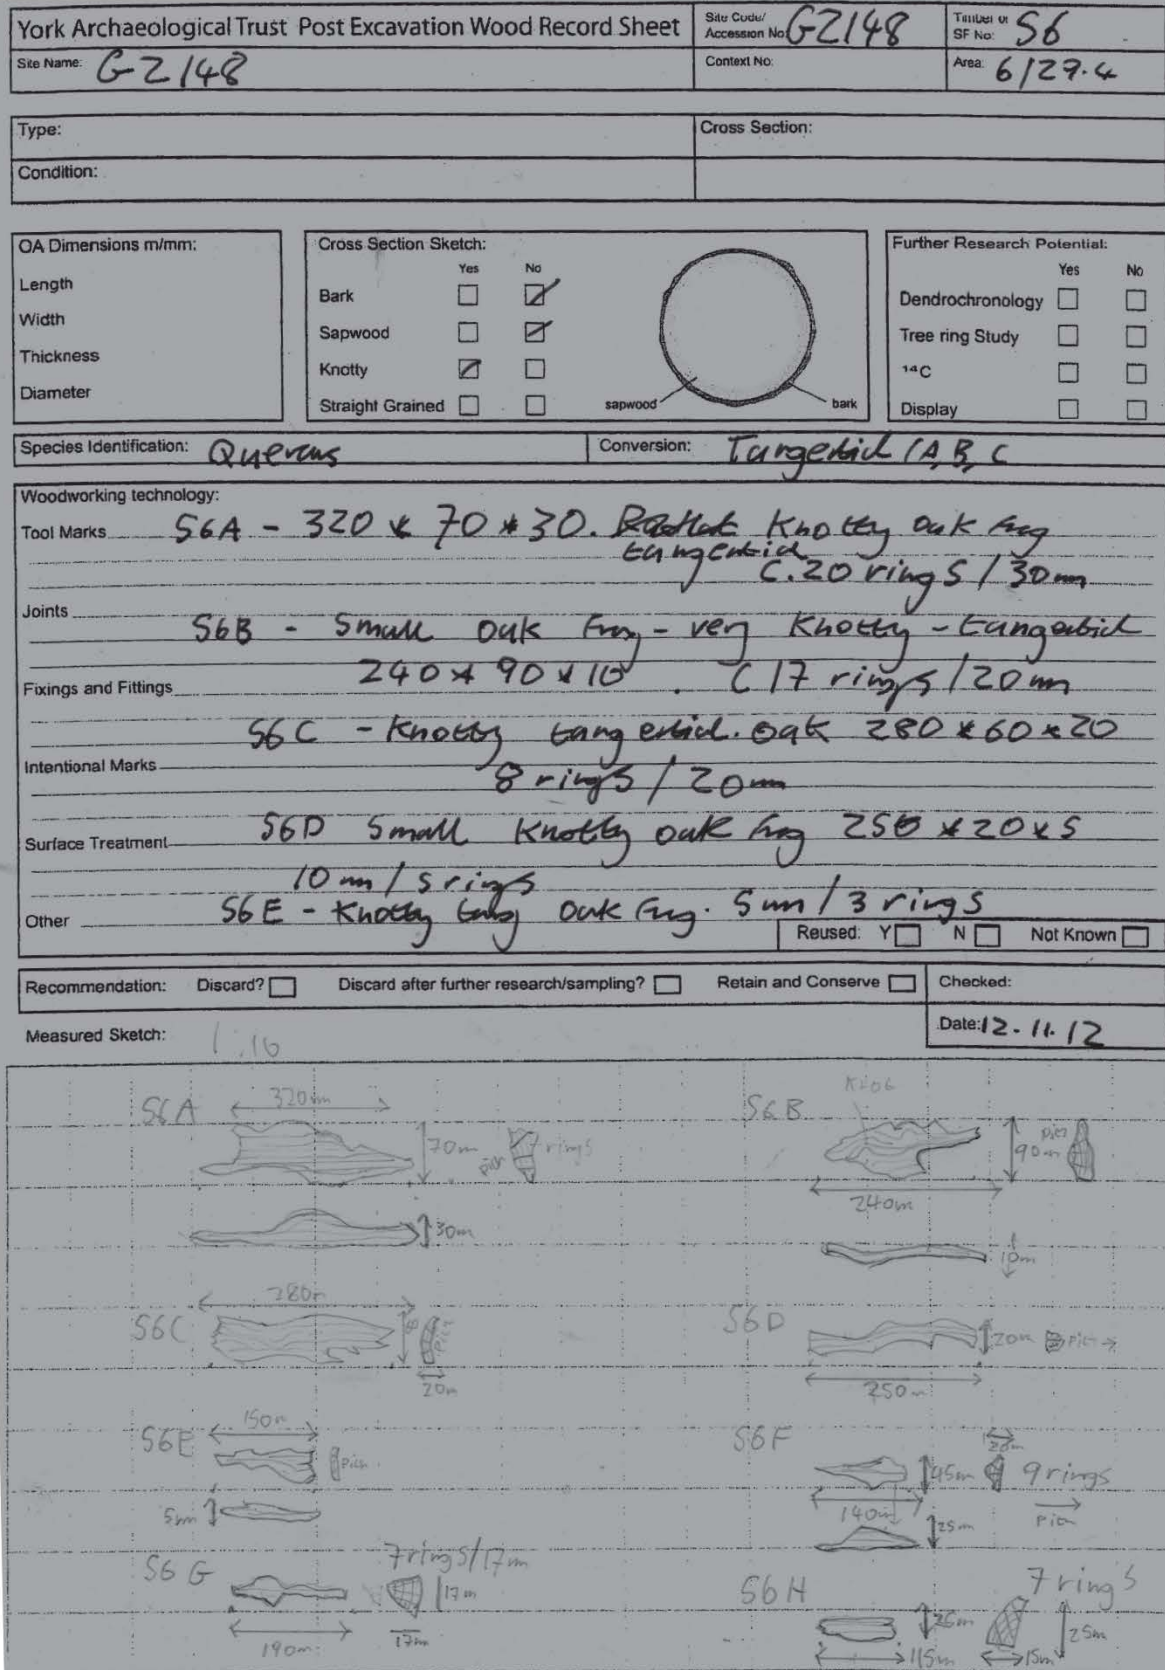 York Archaeological Trust Post Excavation Wood Record Sheet
Site Code/ Accession No: GZ148
Timber or SF No: S6
Site Name: GZ148
Context No:
Area: 6/29.4
Type:
Cross Section:
Condition:
OA Dimensions m/mm:
Length
Width
Thickness
Diameter
Cross Section Sketch:
Yes No
Bark
Sapwood
Knotty
Straight Grained
sapwood
bark
Further Research Potential:
Yes No
Dendrochronology
Tree ring Study
14C
Display
Species Identification: Quercus
Conversion: Tangential / A, B, C
Woodworking technology:
Tool Marks S6A - 320 x 70 x 30. Knotty Oak frag
tangential
C.20 rings / 30mm
Joints
S6B - Small Oak Frag - very Knotty - tangential
Fixings and Fittings 240 x 90 x 10 . C 17 rings / 20mm
S6C - Knotty tangential. Oak 280 x 60 x 20
Intentional Marks
8 rings / 20mm
Surface Treatment S6D Small Knotty Oak frag 250 x 20 x 5
10mm / 5 rings
Other S6E - Knotty tang Oak frag. 5mm / 3 rings
Reused: Y N Not Known
Recommendation: Discard? Discard after further research/sampling? Retain and Conserve
Checked:
Measured Sketch: 1:10
Date: 12.11.12
S6A 320mm
70m pith 7 rings
30m
S6B Knot
90m pith
240m
10m
S6C 280m
pith
20m
S6D
20m pith
250m
S6E 150m
pith
5mm
S6F
45m 9 rings
140m pith
25m
S6G 7 rings/17m
17m
190m 17m
S6H 7 rings
25m 25m
115m 15m